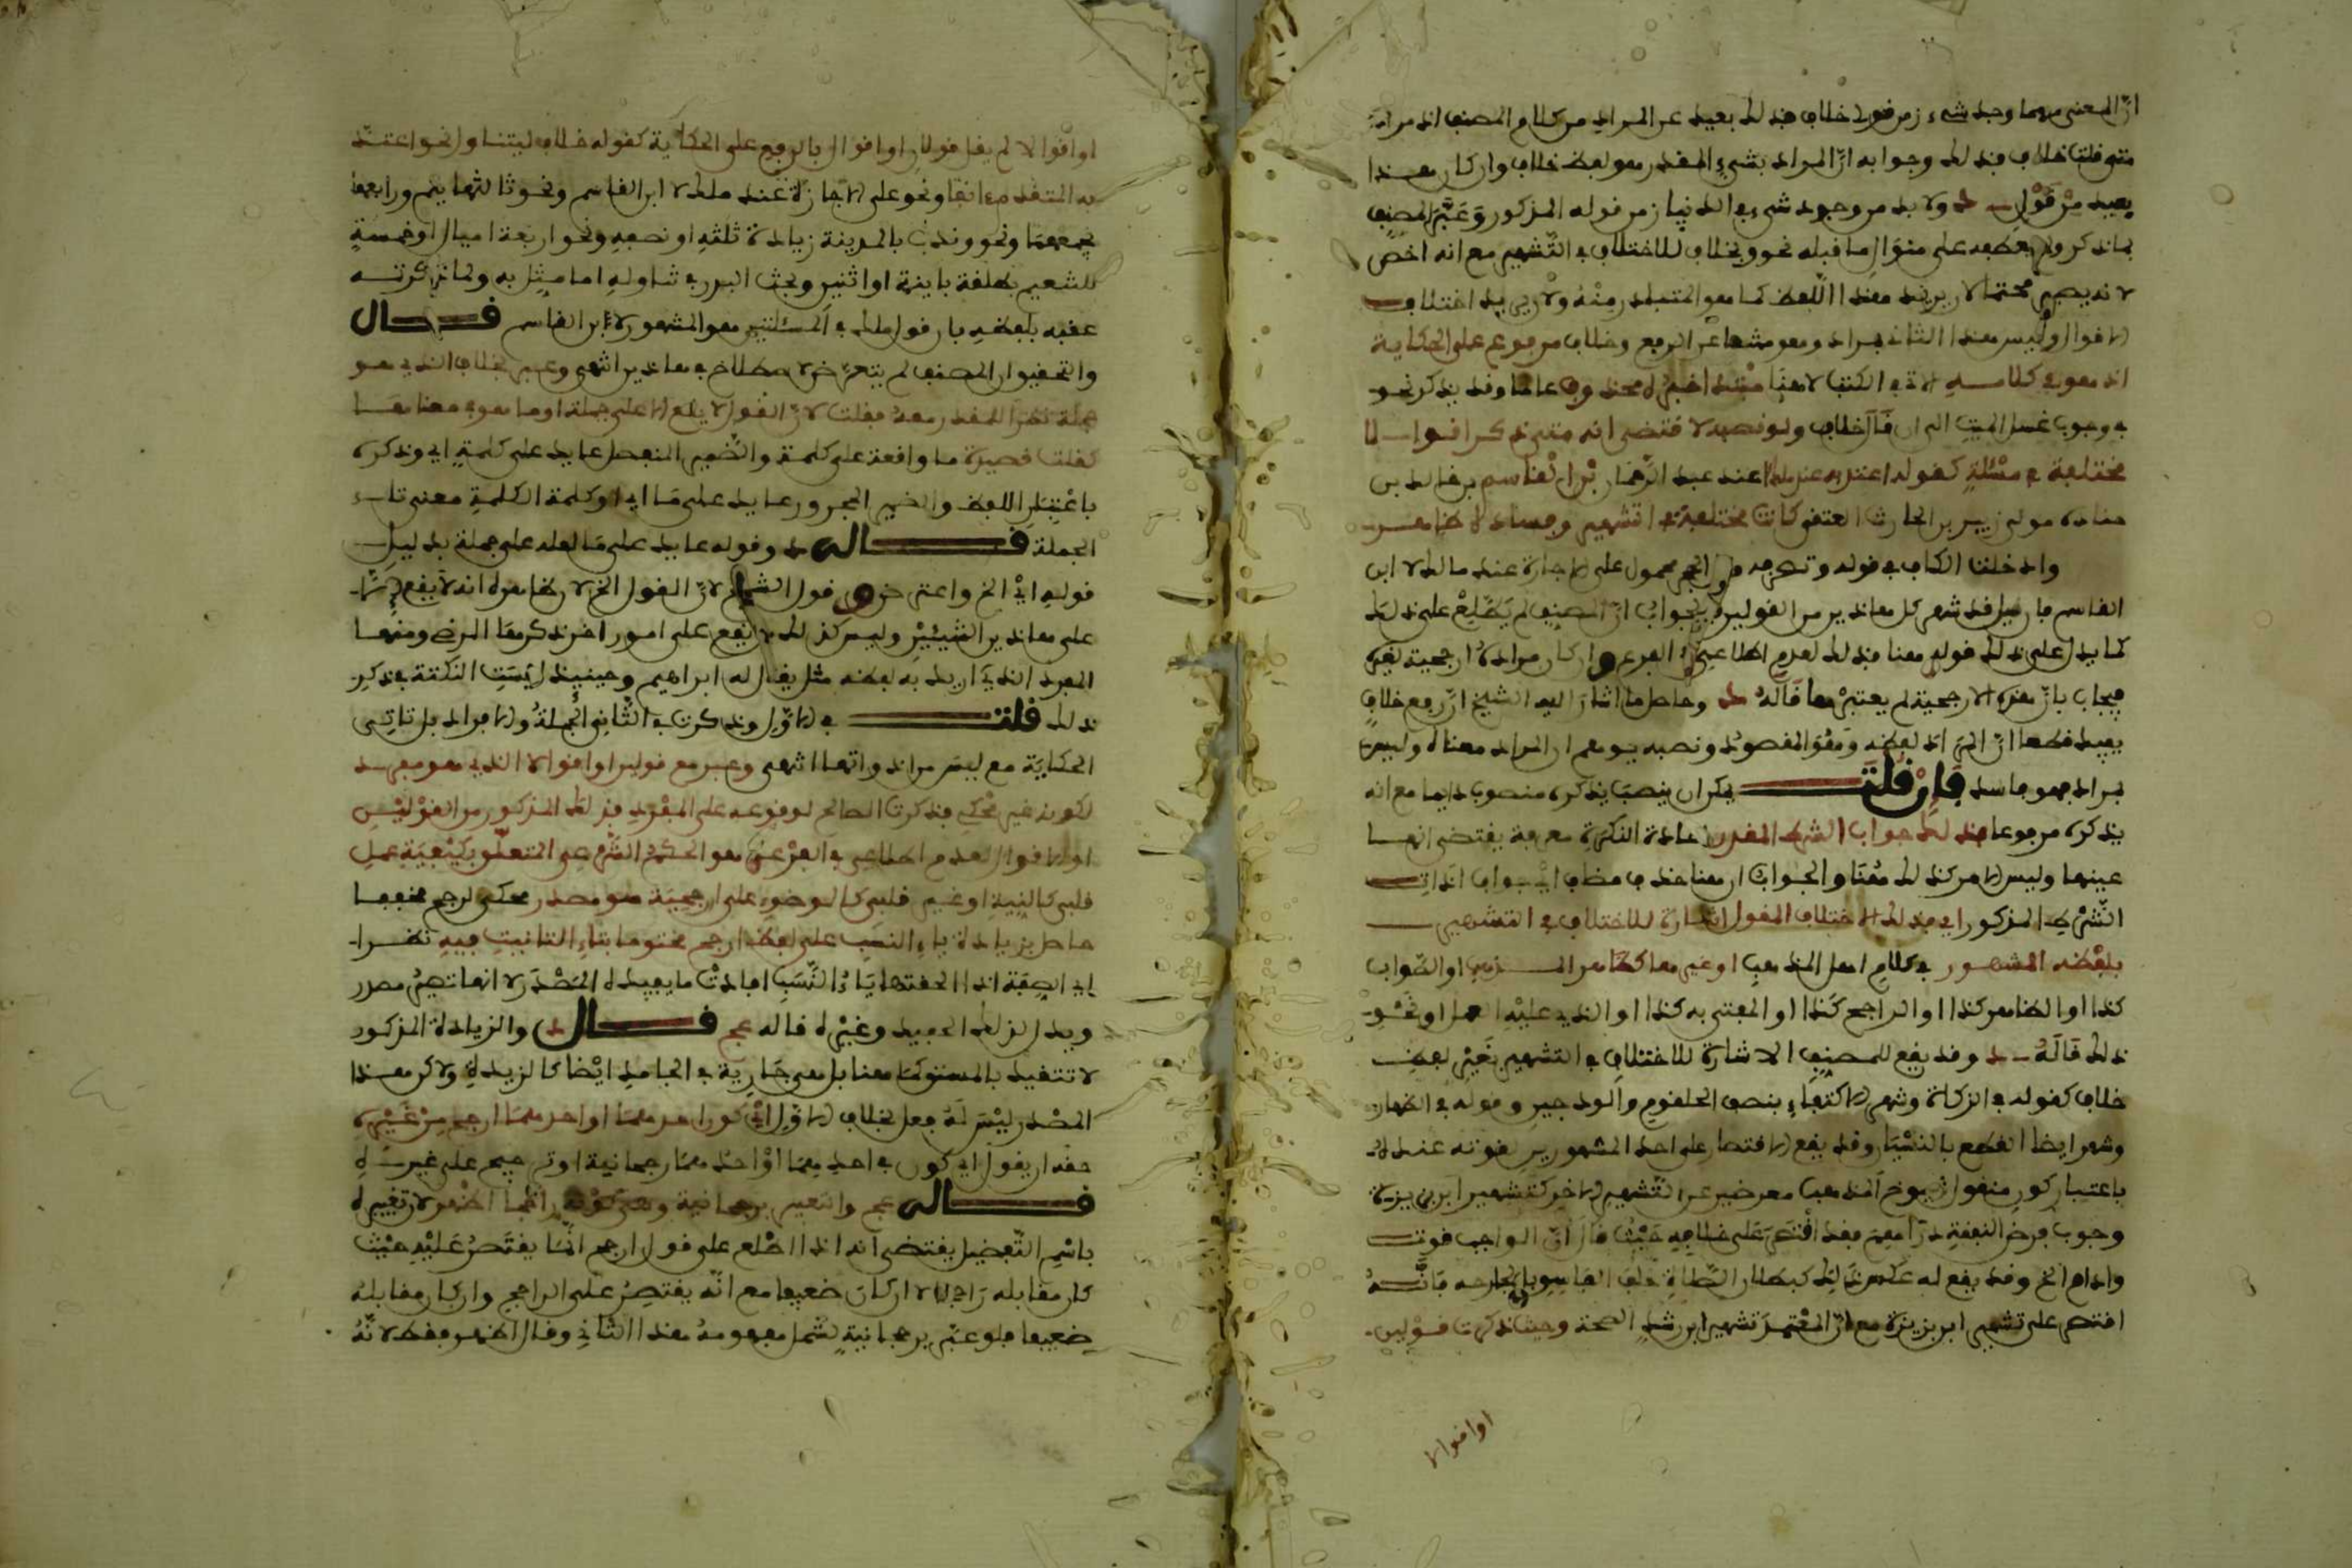 ان المعنى مهما وجد شيء من قول خلاف فذلك بعيد عن المراد من كلام المصنف اذ مراده
متى قلت خلاف فذلك وجوابه ان المراد بشيء المقدر هو لفظ خلاف وان كان هذا
بعيد من قول ولا بد من وجود شيء في الدنيا من قوله المذكور وعبر المصنف
بما ذكر ولم يعطفه على منوال ما قبله نحو وبخلاف للاختلاف في التشهير مع انه اخص
لانه يصير محتملا لان يريد هذا اللفظ كما هو المتبادر منه ولان يريد اختلاف
الاقوال وليس هذا الثاني بمراد وهو منشا عن الرفع وخلاف مرفوع على الحكاية
اذ هو في كلامه الاتي في الكتاب لا هنا مبتدا خبره محذوف غالبا وقد يذكر نحو
في وجوب غسل الميت الى ان قال خلاف ولو نصبه لاقتضى انه متى ذكر اقوالا
مختلفة في مسئلة كقوله اعتد به عند مالك لا عند عبد الرحمان بن القاسم بن خالد بن
جنادة مولى زبيد بن الحارث العتقي كانت مختلفة في التشهير وفساده ظاهر
وادخلنا الكاف في قوله وتصرفه قبل الحجر محمول على الاجازة عند مالك لا ابن
القاسم فان قيل قد شهر كل هاذين من القولين فالجواب ان المصنف لم يطلع على ذلك
كما يدل على ذلك قوله هنا فذلك لعدم اطلاعي في الفرع وان كان مراده ارجحية لغيره
فيجاب بان هذه الارجحية لم يعتبرها قاله وحاصل ما اشار اليه الشيخ ان رفع خلاف
يفيد قطعا ان المراد لفظه وهو المقصود ونصبه يوهم ان المراد معناه وليس
بمراد فهو فاسد فان قلت يمكن ان ينصب يذكره منصوب دايما مع انه
يذكره مرفوعا فذلك جواب الشرط المقدر اعادة النكرة معرفة يقتضي انها
عينها وليس الامر كذلك هنا والجواب ان هنا حذف مضاف اي جواب اداة
الشرط المذكور اي فذلك الاختلاف المقول اشارة للاختلاف في التشهير
بلفظه المشهور في كلام اهل المذهب او غيرها كظاهر المذهب او الصواب
كذا او الظاهر كذا او الراجح كذا او المفتى به كذا او الذي عليه العمل او نحو
ذلك قاله وقد يقع للمصنف الاشارة للاختلاف في التشهير بغير لفظ
خلاف كقوله في الزكاة وشهر الاكتفاء بنصف الحلقوم والودجين وقوله في الظهار
وشهر ايضا القطع بالنسيان وقد يقع الاقتصار على احد المشهورين لقوته عنده
باعتبار كون منقول شيوخ المذهب معرضين عن التشهير الاخر كتشهير ابن بزيزة
وجوب فرض النفقة دراهم فقد اقتصر على خلافه حيث قال ان الواجب قوت
وادام الخ وقد يقع له عكس ذلك كبطلان الصلاة خلف الفاسق بالجارحة فانه
اقتصر على تشهير ابن بزيزة مع ان المعتمد تشهير ابن رشد الصحة وحيث ذكرت قولين
او اقوالا
او اقوالا لم يقل قولان او اقوال بالرفع على الحكاية كقوله خلاف ليتناول نحو اعتد
به المتقدم انفا ونحو على الاجازة عند مالك لا ابن القاسم ونحو ثالثها يتم ورابعها
يجمعهما ونحو وندب بالمدينة زيادة ثلثه او نصفه ونحو اربعة اميال او خمسة
للشعير بطلقة باينة او اثنين وبحث البدر في تناوله اما مثل به ولما ذكرته
عقبه بلفظه بان قول مالك في المسئلتين هو المشهور لا ابن القاسم قال
والتحقيق ان المصنف لم يتعرض لاصطلاح في هاذين انتهى وعبر بخلاف الذي هو
جملة نظرا للمقدر معه فقلت لان القول لا يقع الا على جملة او ما هو في معناها
كقلت قصيدة ما واقعة على كلمة والضمير المنفصل عايد على كلمة اي وذكره
باعتبار اللفظ والضمير المجرور عايد على ما اي او كلمة الكلمة معنى تلك
الجملة قاله وقوله عايد على ما لعله على جملة بدليل
قوله اي الخ واعترض قول الشيخ لان القول الخ لان ظاهره انه لا يقع الا
على هاذين الشيئين وليس كذلك بل يقع على امور اخر ذكرها الرضى ومنها
المفرد الذي اريد به لفظه مثل يقال له ابراهيم وحينئذ ليست النكتة في ذكر
ذلك قلت في الاول وذكرت في الثاني الجملة والافراد بل تاتي
الحكاية مع ليس مراد واتها انتهى وعبر مع قولين او اقوالا الذي هو مفرد
لكونه غير محكي فذكرت الصالح لوقوعه على المفرد فذلك المذكور من القولين
او الاقوال لعدم اطلاعي في الفرع هو الحكم الشرعي المتعلق بكيفية عمل
قلبي كالنية او غير قلبي كالوضوء على ارجحية هو مصدر محكي لرجح مخففا
حاصل بزيادة ياء النسب على لفظ ارجح مختوما بتاء التانيث فيه نظرا
الى الصفة اذ الحقتها ياء النسب افادت ما يفيده المصدر لا انها تصير مصدر
ويدل لذلك الحفيد وغيره قاله عج قال والزيادة المذكور
لا تتقيد بالمستو كما هنا بل هي جارية في الجامد ايضا كالزيدية ولاكن هذا
المصدر ليس له فعل بخلاف الاول اي كون احدهما او احدهما ارجح من غيره
حقه ان يقول اي كون في احدهما او احدهما رجحانية او ترجيح على غيره
قاله عج والتعبير برجحانية اظهر لان تعبيره
باسم التفضيل يقتضي انه اذا اطلع على قول ارجح انما يقتصر عليه حيث
كان مقابله راجحا لا ان كان ضعيفا مع انه يقتصر على الراجح وان كان مقابله
ضعيفا فلو عبر برجحانية لشمل مفهومه هذا الثاني وقال اظهر فقط لانه